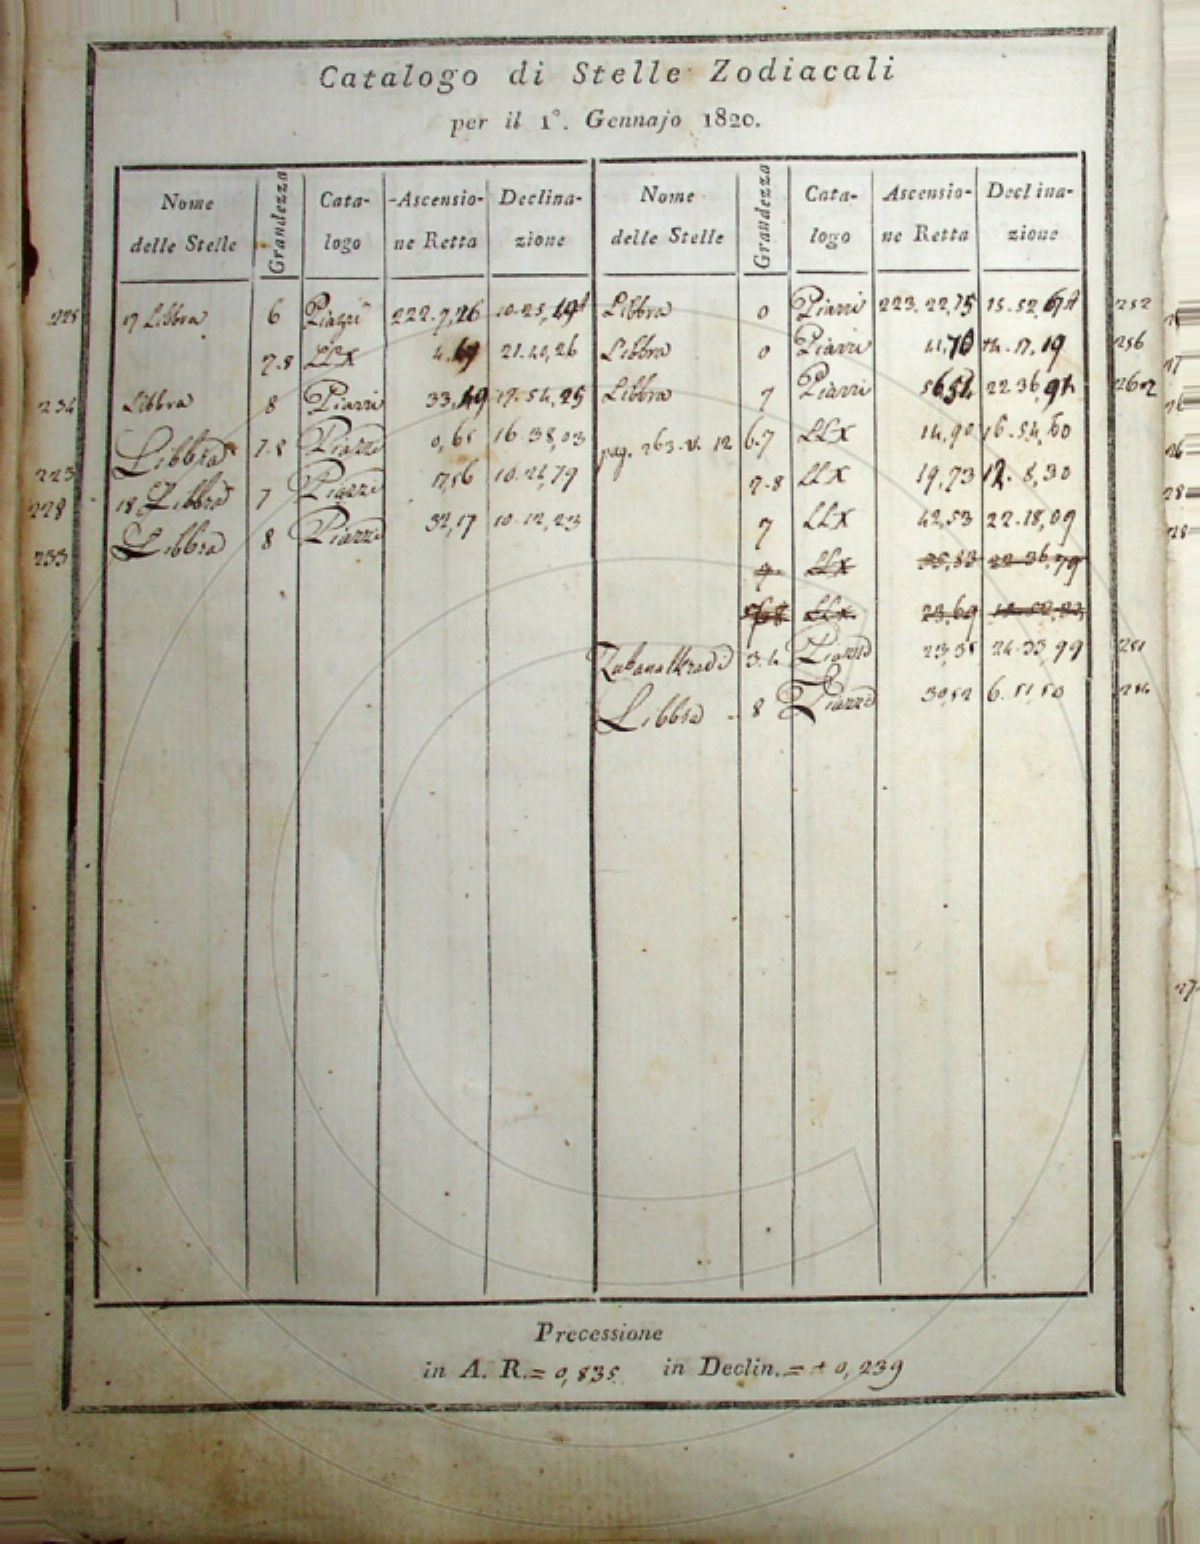 Catalogo di Stelle Zodiacali
per il 1°. Gennajo 1820.
Nome delle Stelle Grandezza Cata-logo Ascensio-ne Retta Declina-zione Nome delle Stelle Grandezza Cata-logo Ascensio-ne Retta Declina-zione
17 Libbra 6 Piazzi 222.7,26 10.25,
7.8 LLX 21.40,26
234 Libbra 8 Piazzi 33,49 17.54,25
Libbra 7.8 Piazzi 0,65 16.38,03
223
18 Libbra 7 Piazzi 17,56 10.24,79
228
Libbra 8 Piazzi 32,17 10.12,23
233
Libbra 0 Piazzi 223.22,75 15.52, 252
Libbra 0 Piazzi 41,70 14.17,19 256
Libbra 7 Piazzi 56,54 22.36,94
pag. 263. v. 12 6.7 LLX 14,90 16.54,60
7.8 LLX 19,73 12.8,30
7 LLX 42,53 22.18,09
LLX 35,83 22.36,79
LLX 23,69
Zubenalkradi 3.4 Piazzi 23,35 24.33,99 251
Libbra 8 Piazzi 30,52 6.51,50 254
Precessione
in A. R.= 0,835 in Declin.= + 0,239